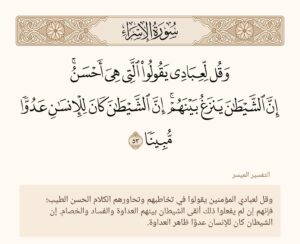 سُورَةُ الإِسْرَاءِ
وَقُل لِّعِبَادِي يَقُولُوا۟ ٱلَّتِى هِىَ أَحْسَنُ ۚ
إِنَّ ٱلشَّيْطَٰنَ يَنزَغُ بَيْنَهُمْ ۚ إِنَّ ٱلشَّيْطَٰنَ كَانَ لِلْإِنسَٰنِ عَدُوًّا
مُّبِينًا ٥٣
التفسير الميسر
وقل لعبادي المؤمنين يقولوا في تخاطبهم وتحاورهم الكلام الحسن الطيب؛
فإنهم إن لم يفعلوا ذلك ألقى الشيطان بينهم العداوة والفساد والخصام. إن
الشيطان كان للإنسان عدوًا ظاهر العداوة.